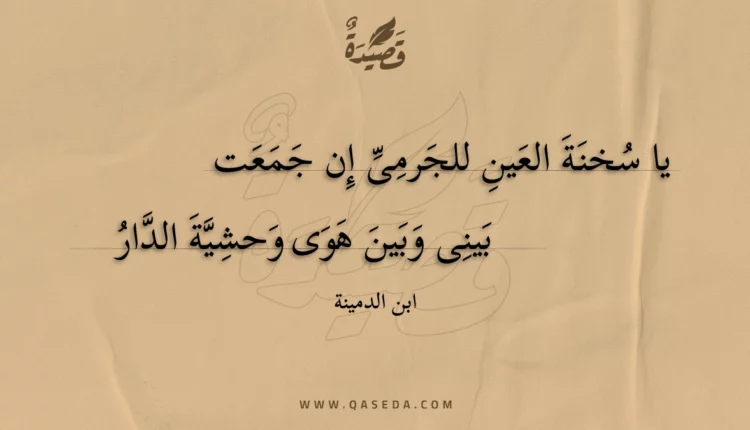 قَصِيْدَةٌ
يا سُخنَةَ العَينِ للجَرمِىِّ إِن جَمَعَت
بَينِى وَبَينَ هَوَى وَحشِيَّةَ الدَّارُ
ابن الدمينة
WWW.QASEDA.COM